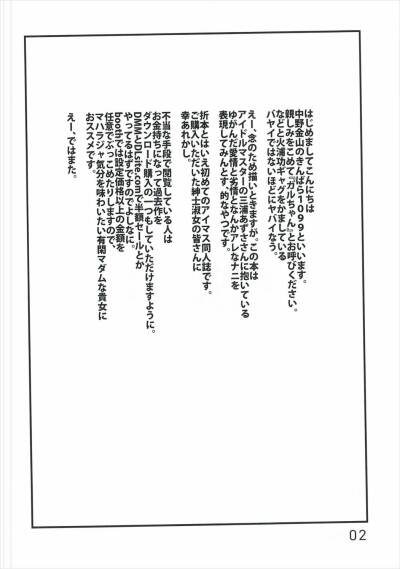 はじめましてこんにちは
中野金山のきんばら1099といいます。
親しみをこめて『ガルちゃん』とお呼びください。
などと火浦功ギャグをかましている
バヤイではないほどにヤバイなう。
えー、念のため描いときますが。この本は
アイドルマスターの三浦あずささんに抱いている
ゆがんだ愛情と劣情となんかアレなナニを
表現してみんとす、的なやつです。
折本とはいえ初めてのアイマス同人誌です。
ご購入いただいた紳士淑女の皆さんに
幸あれかし。
不当な手段で閲覧している人は
お金持ちになって過去作を
ダウンロード購入の一つもしていただけますように。
DMMやDLsite.comで半額セールとか
やってるはずですのでよしなに。
boothでは設定価格以上の金額を
任意でぶっこめたりしますので、
マハラジャ気分を味わいたい有閑マダムな貴女に
おススメです。
えー、ではまた。
02